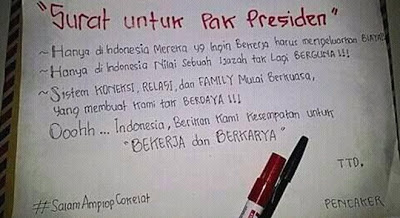 "Surat untuk Pak Presiden"
~ Hanya di Indonesia Mereka yg Ingin Bekerja harus mengeluarkan BIAYA!!!
~ Hanya di Indonesia Nilai Sebuah Ijazah tak Lagi BERGUNA!!!
~ Sistem KONEKSI, RELASI, dan FAMILY Mulai Berkuasa,
yang membuat Kami tak BERDAYA!!!
Ooohh... Indonesia, Berikan Kami Kesempatan untuk
"BEKERJA dan BERKARYA"
TTD.
#SalamAmplopCokelat
PENCAKER